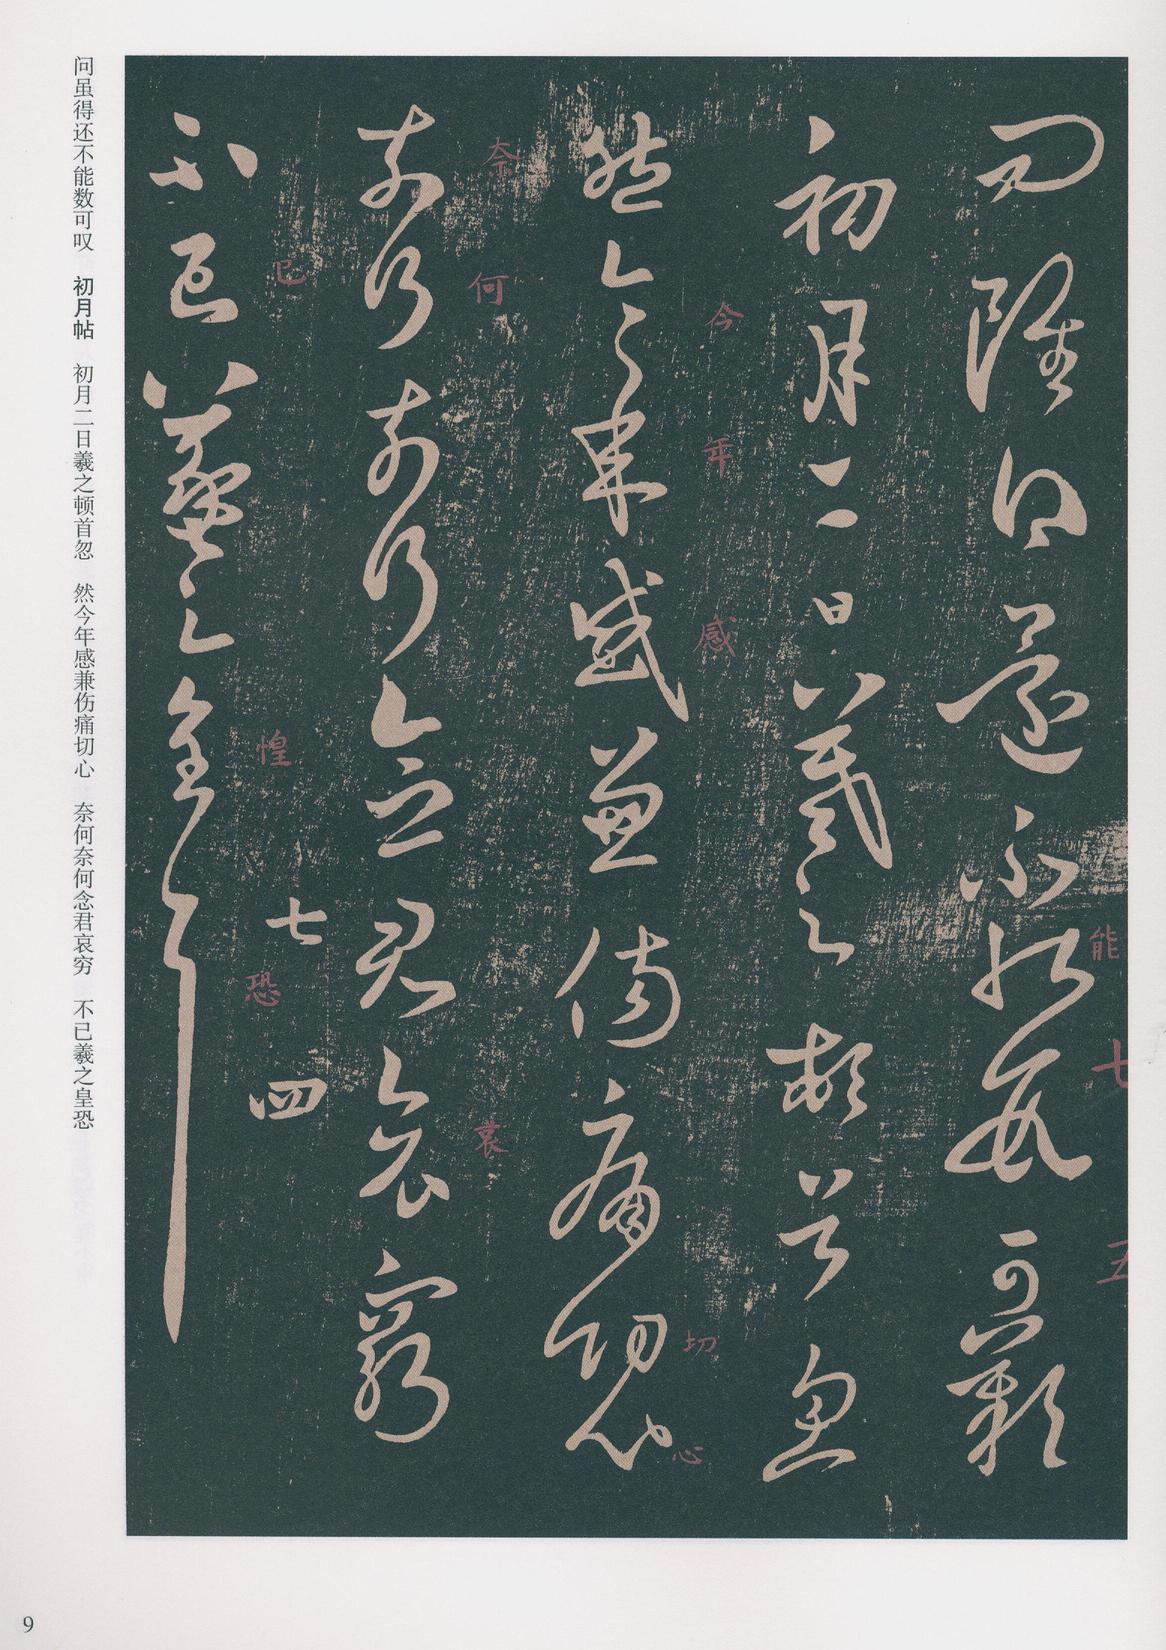 能 七 五
問雖得還不能數可歎
初月二日羲之頓首忽
今 年 感 切 心
然今年感兼傷痛切心
奈 何 哀
奈何奈何念君哀窮
已 惶 恐
七 四
不已羲之皇恐
问虽得还不能数可叹 初月帖 初月二日羲之顿首忽 然今年感兼伤痛切心 奈何奈何念君哀穷 不已羲之皇恐
9